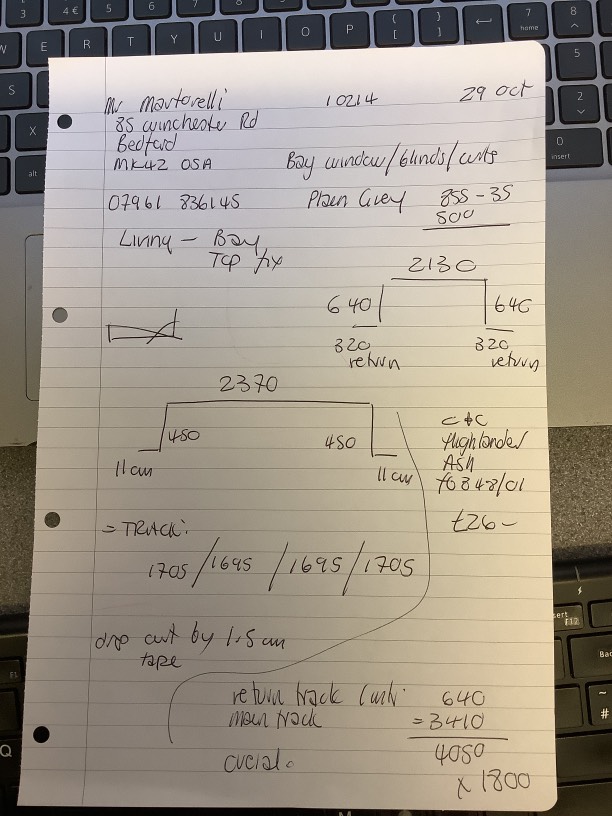 Mr Martorelli 10214 29 Oct
85 Winchester Rd
Bedford
MK42 0SA Bay window/blinds/curts
07961 836145 Plain Grey 855-35
500
Living - Bay
Top fix
2130
640 640
320 320
return return
2370
480 480
11cm 11cm
C+C
Highlander
ASH
f0848/01
£26-
= TRACK:
1705/1695/1695/1705
drop curt by 1.5cm
tape
return track curts: 640
main track =3410
4050
crucial. x 1800